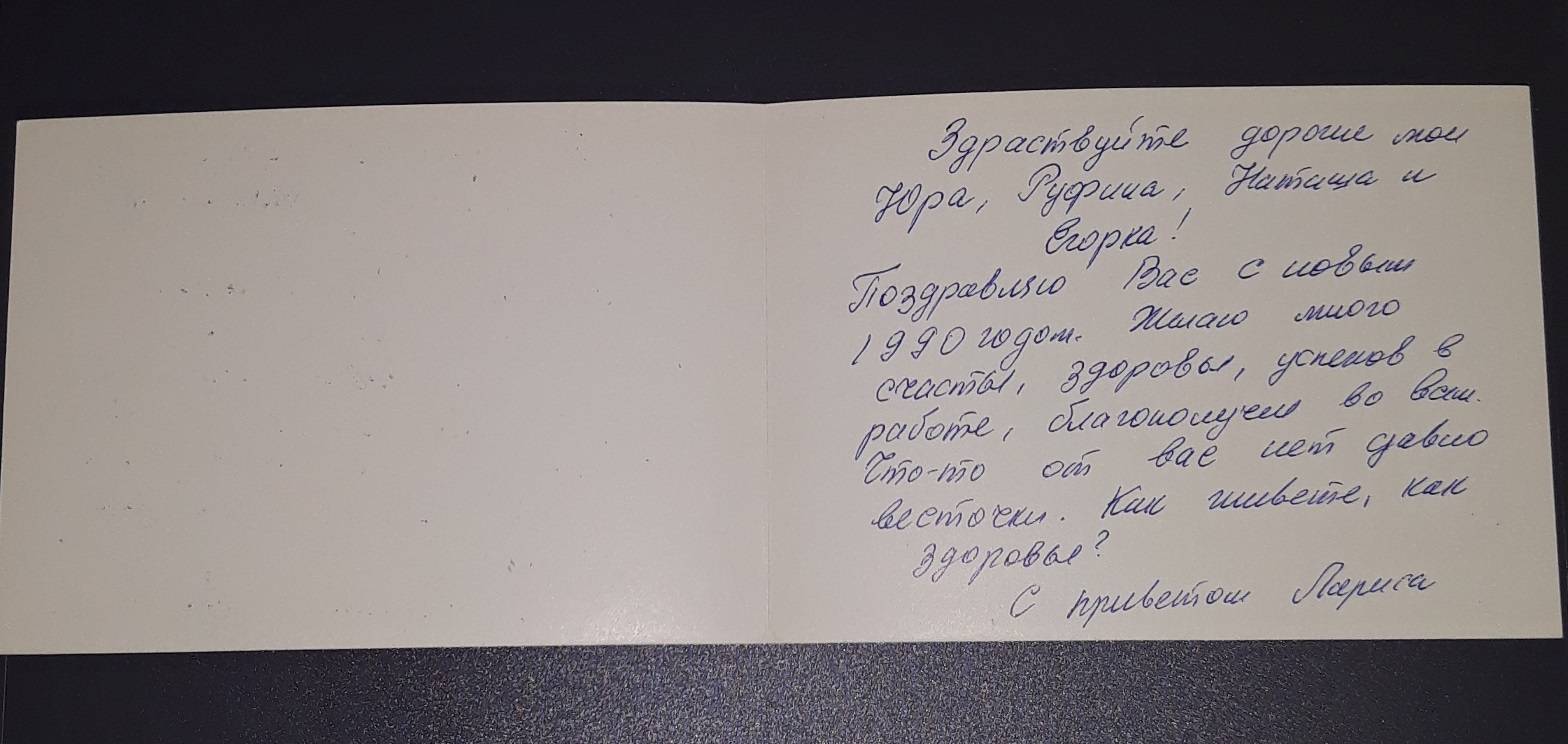 Здраствуйте дорогие мои
Юра, Руфина, Наташа и
Егорка!
Поздравляю Вас с новым
1990 годом. Желаю много
счастья, здоровья, успехов в
работе, благополучия во всем.
Что-то от вас нет давно
весточки. Как живете, как
здоровье?
С приветом Лариса